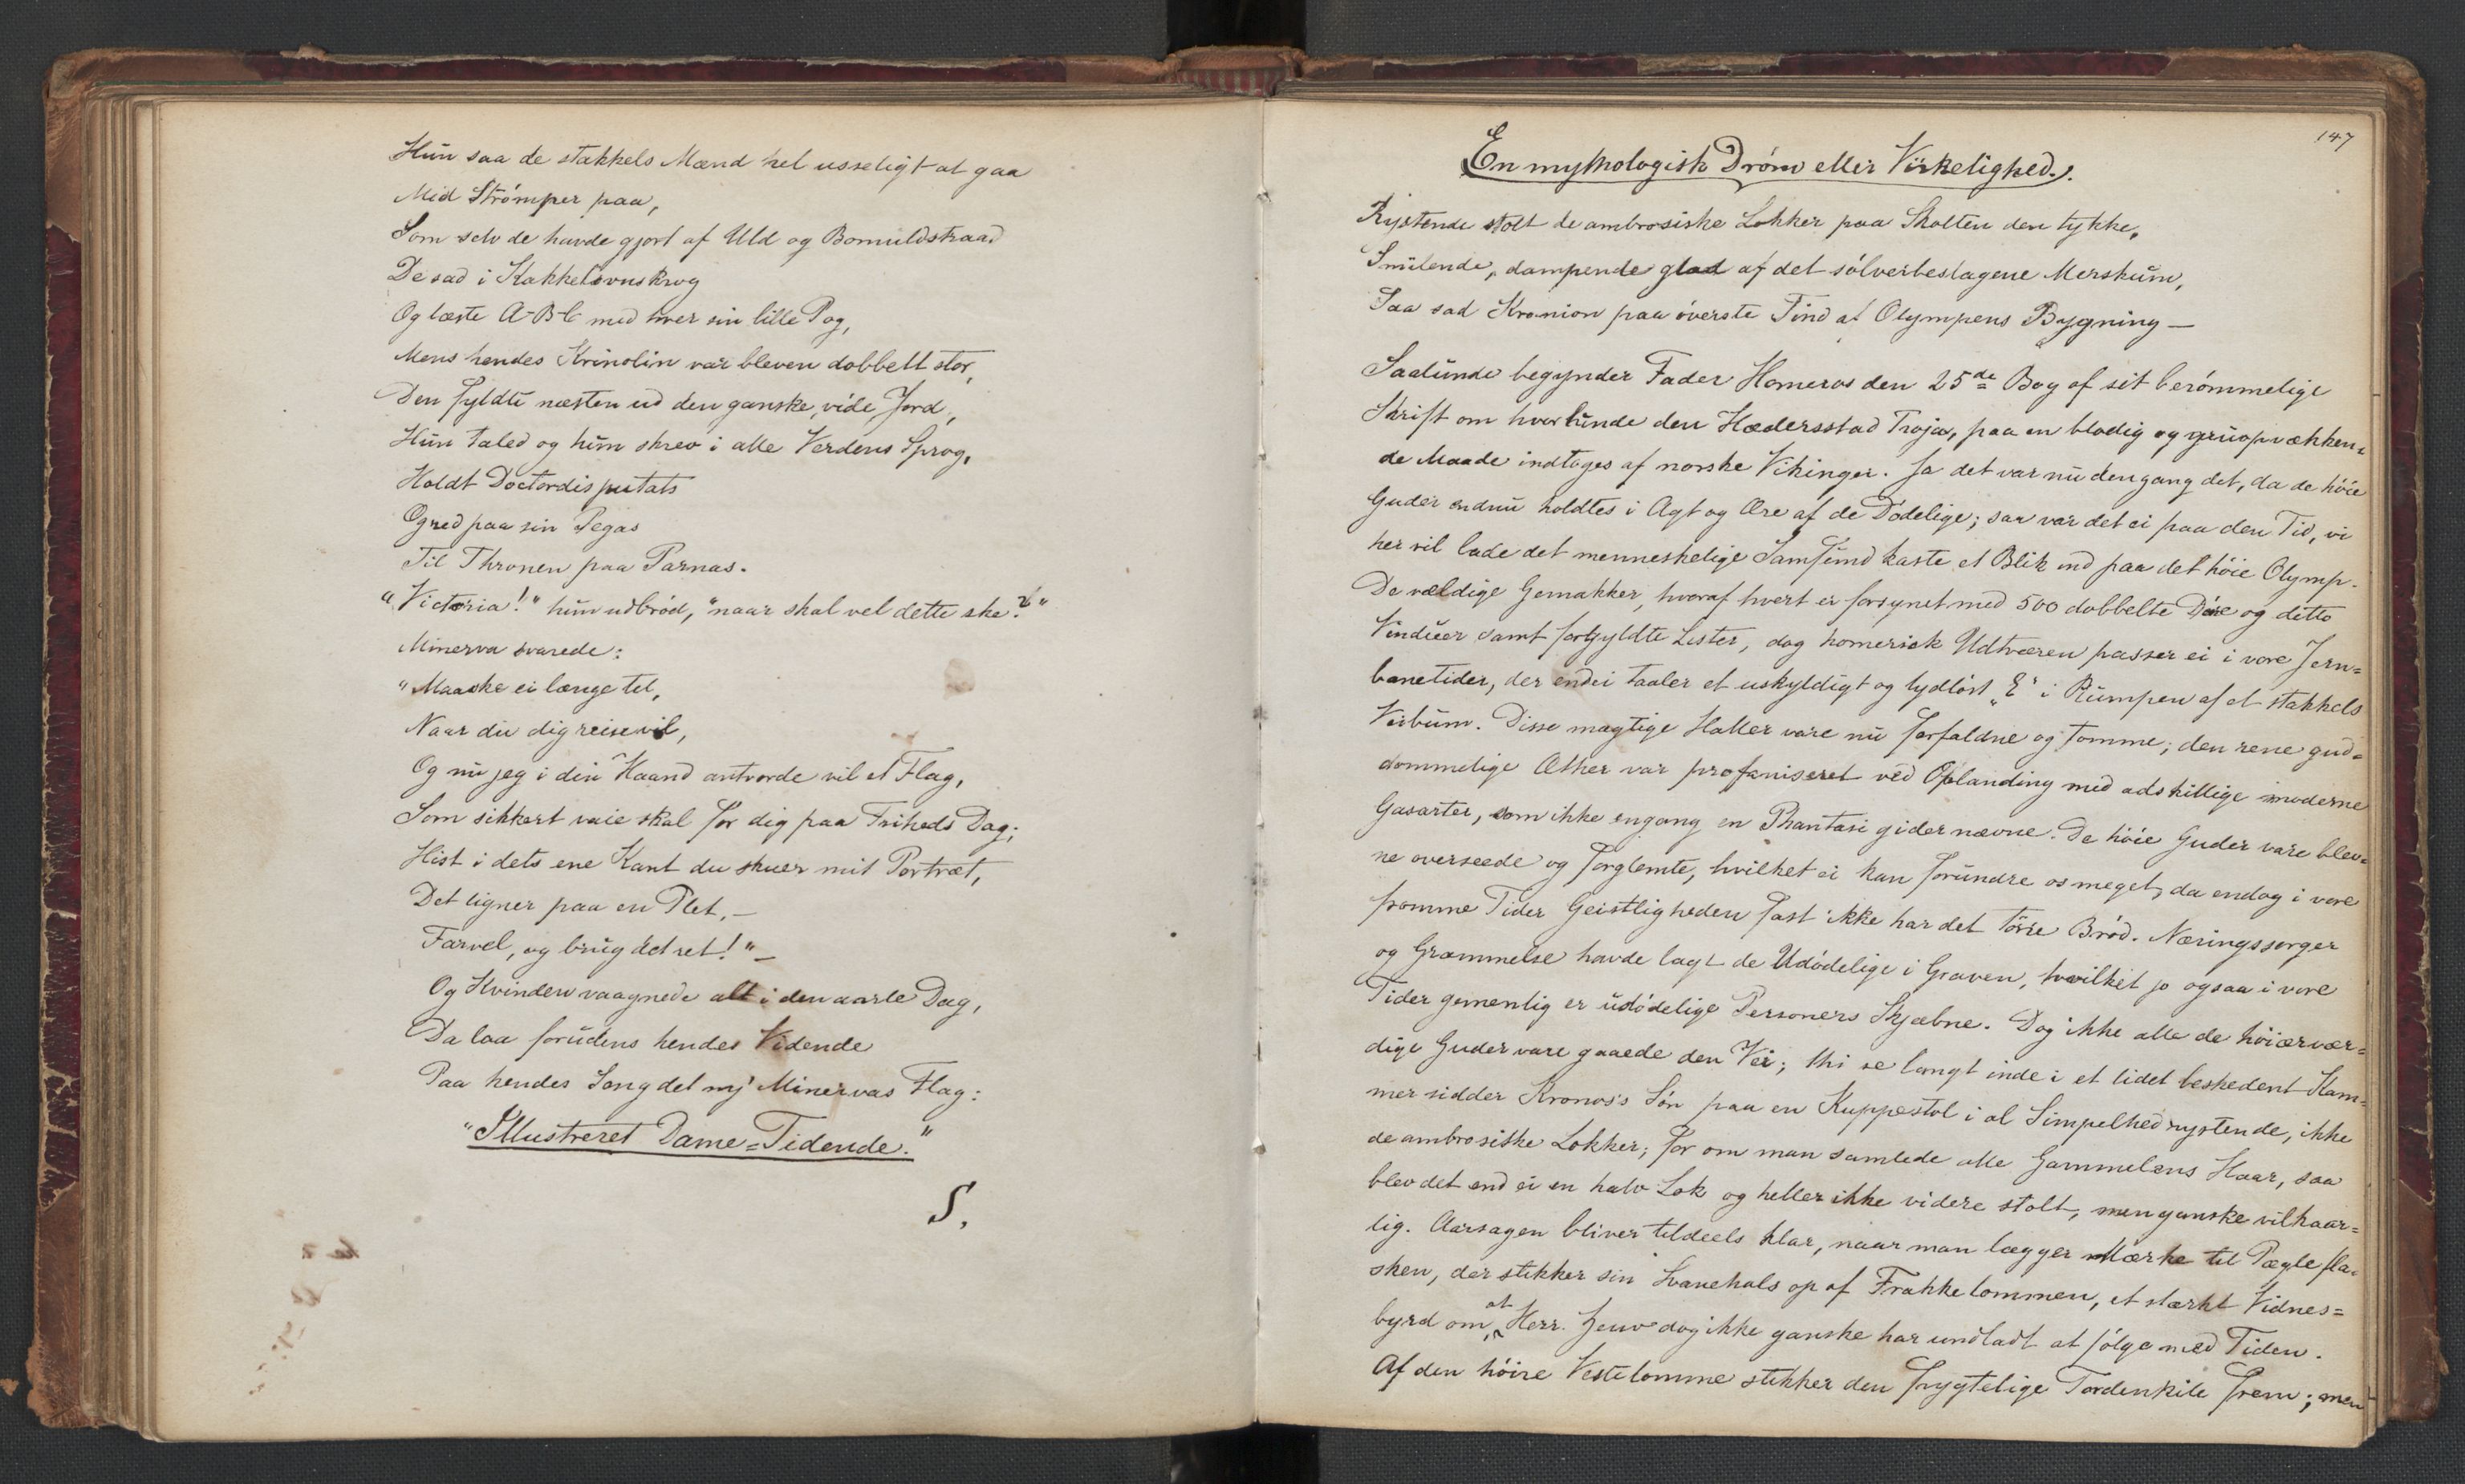 Hun saa de stakkels Mænd hel usseligt at gaa
Med Strømper paa,
Som selv de havde gjort af Uld og Bomuldstraad
De sad i Kakkelovnskrog
Og læste A-B-C med hver sin lille Pog,
Mens hendes Krinolin var bleven dobbelt stor,
Den fyldte næsten ud den ganske, vide Jord,
Hun taled og hun skrev i alle Verdens Sprog,
Holdt Doctordisputats
Og red paa sin Pegas
Til Thronen paa Parnas.
"Victoria!" hun udbrød, "naar skal vel dette ske?"
Minerva svarede:
"Maaske ei længe til,
Naar du dig reise vil,
Og nu jeg i din Haand antvorde vil et Flag,
Som sikkert vaie skal for dig paa Friheds Dag;
Hist i dets ene Kant du skuer mit Portræt,
Det ligner paa en Plet, –
Farvel, og brug det ret!" –
Og Kvinden vaagnede alt i den aarle Dag,
Da laa foruden hendes Vidende
Paa hendes Seng det ny Minervas Flag:
"Illustreret Dame=Tidende."
S.
147
En mythologisk Drøm eller Virkelighed.
Rystende stolt de ambrosiske Lokker paa Skolten den tykke,
Smilende, dampende glad af det sølverbeslagene Merskum,
Saa sad Kronion paa øverste Tind af Olympens Bygning —
Saalunde begynder Fader Homeros den 25de Bog af sit berømmelige
Skrift om hvorlunde den Hædersstad Troja, paa en blodig og gruopvækken=
de Maade indtoges af norske Vikinger. Ja det var nu dengang det, da de høie
Guder endnu holdtes i Agt og Ære af de Dødelige; saa var det ei paa den Tid, vi
her vil lade det menneskelige Samfund kaste et Blik ind paa det høie Olymp.
De vældige Gemakker, hvoraf hvert er forsynet med 500 dobbelte Døre og ditto
Vinduer samt forgyldte Lister, dog homerisk Udtværen passer ei i vore Jern=
banetider, der endei taaler et uskyldigt og lydløst "E" i Rumpen af et stakkels
Verbum. Disse mægtige Haller vare nu forfaldne og tomme; den rene gud=
dommelige Æther var profaniseret ved Opblanding med adskillige moderne
Gasarter, som ikke engang en Phantasi gider nævne. De høie Guder vare blev=
ne overseede og forglemte, hvilket ei kan forundre os meget, da endog i vore
fromme Tider Geistligheden fast ikke har det tørre Brød. Næringssorger
og Græmmelse havde lagt de Udødelige i Graven, hvilket jo ogsaa i vore
Tider gemenlig er udødelige Personers Skjæbne. Dog ikke alle de høiærvær=
dige Guder vare gaaede den Vei; thi se langt inde i et lidet beskedent Kam=
mer sidder Kronos's Søn paa en Kuppestol i al Simpelhed rystende, ikke
de ambrosiske Lokker; for om man samlede alle Gammelens Haar, saa
blev det end ei en halv Lok og heller ikke videre stolt, men ganske vilkaar=
lig. Aarsagen bliver tildeels klar, naar man lægger Mærke til Pæglefla=
sken, der stikker sin Svanehals op af Frakkelommen, et stærkt Vidnes=
byrd om at Herr. Zeus dog ikke ganske har undladt at følge med Tiden.
Af den høire Vestelomme stikker den frygtelige Tordenkile frem; men